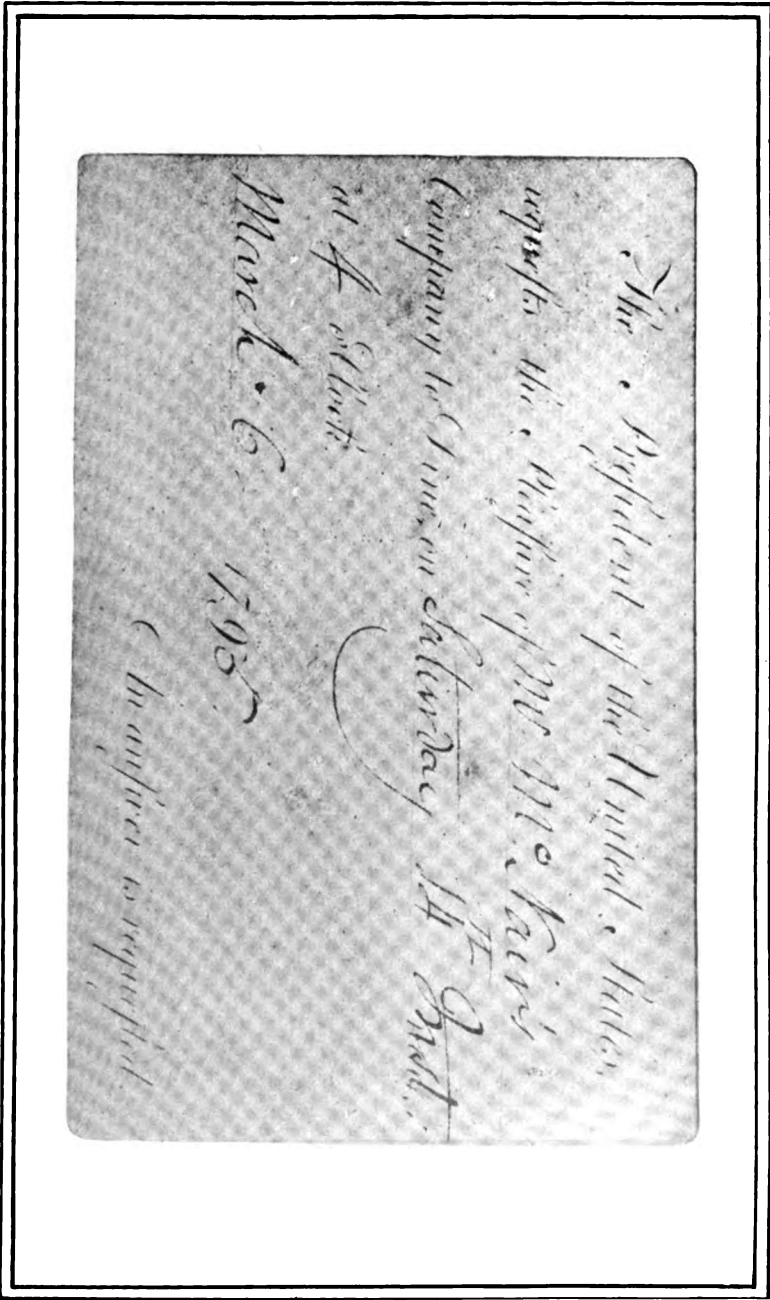 The President of the United States
requests the Pleasure of Mr. McNair's
Company to Dine, on Saturday 14th Inst.
at 4 oClock
March 6 1795
An answer is requested